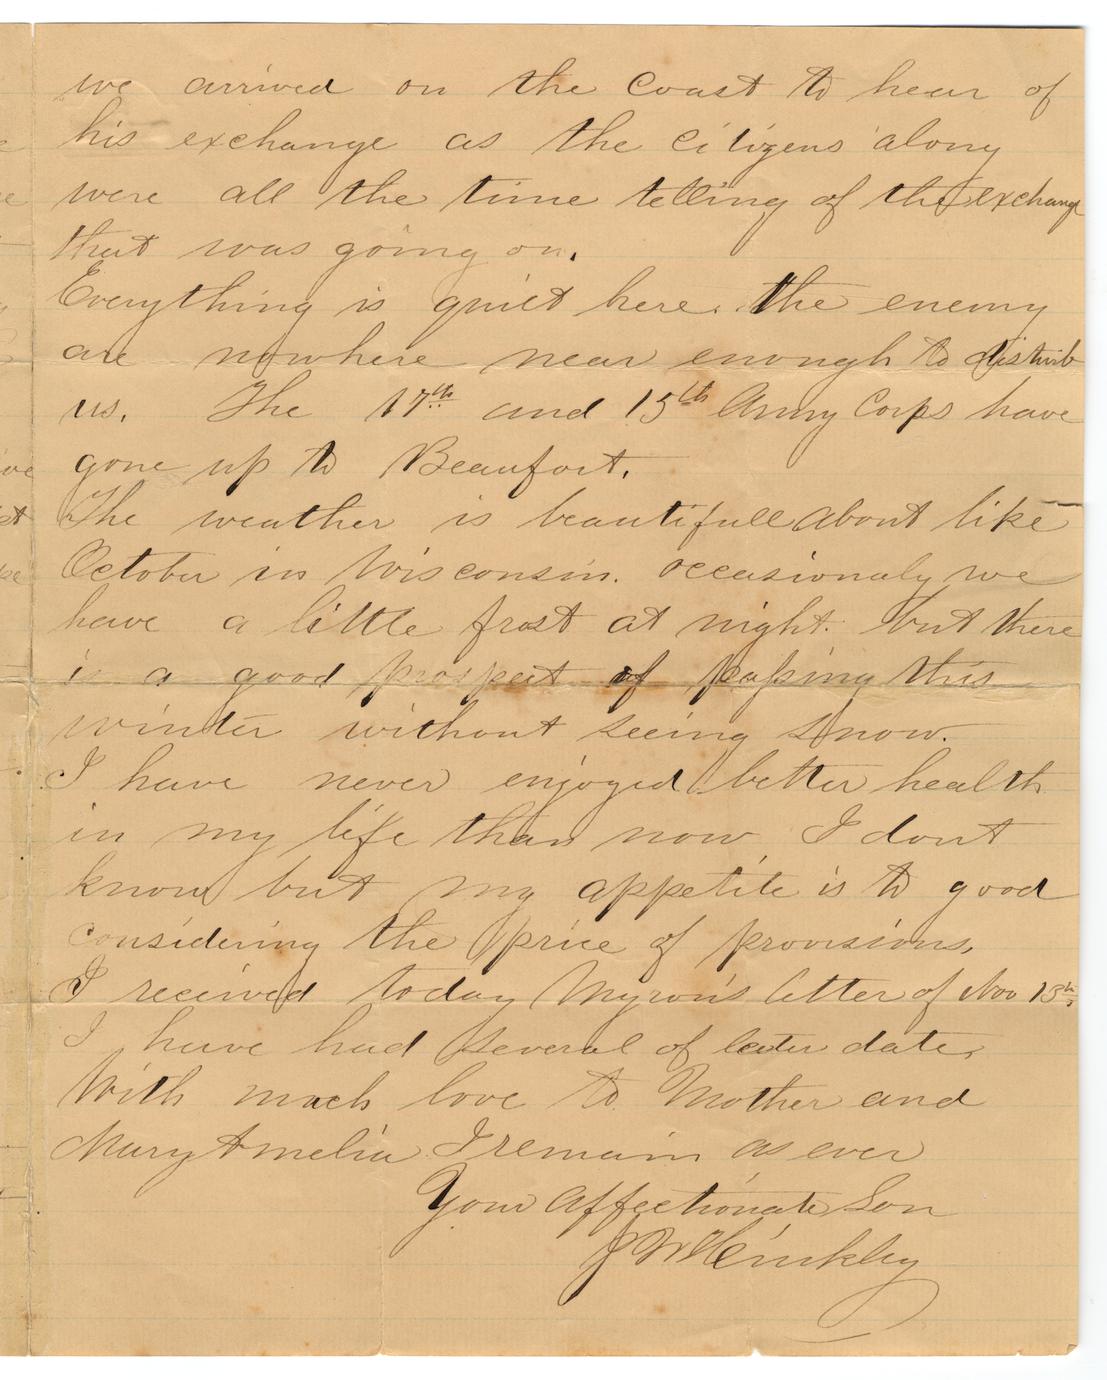 we arrived on the Coast to hear of
his exchange as the citizens along
were all the time telling of the exchange
that was going on.
Everything is quiet here. the enemy
are nowhere near enough to disturb
us. The 17th and 15th Army Corps have
gone up to Beaufort.
The weather is beautifull about like
October in Wisconsin. occasionaly we
have a little frost at night. but there
is a good prospect of passing this
winter without seeing snow.
I have never enjoyed better health
in my life than now I dont
know but my appetite is to good
considering the price of provisions,
I received today Myron's letter of Nov 15th,
I have had several of later date,
With much love to Mother and
Mary Amelia I remain as ever
Your Affectionate Son
J W Hinkley